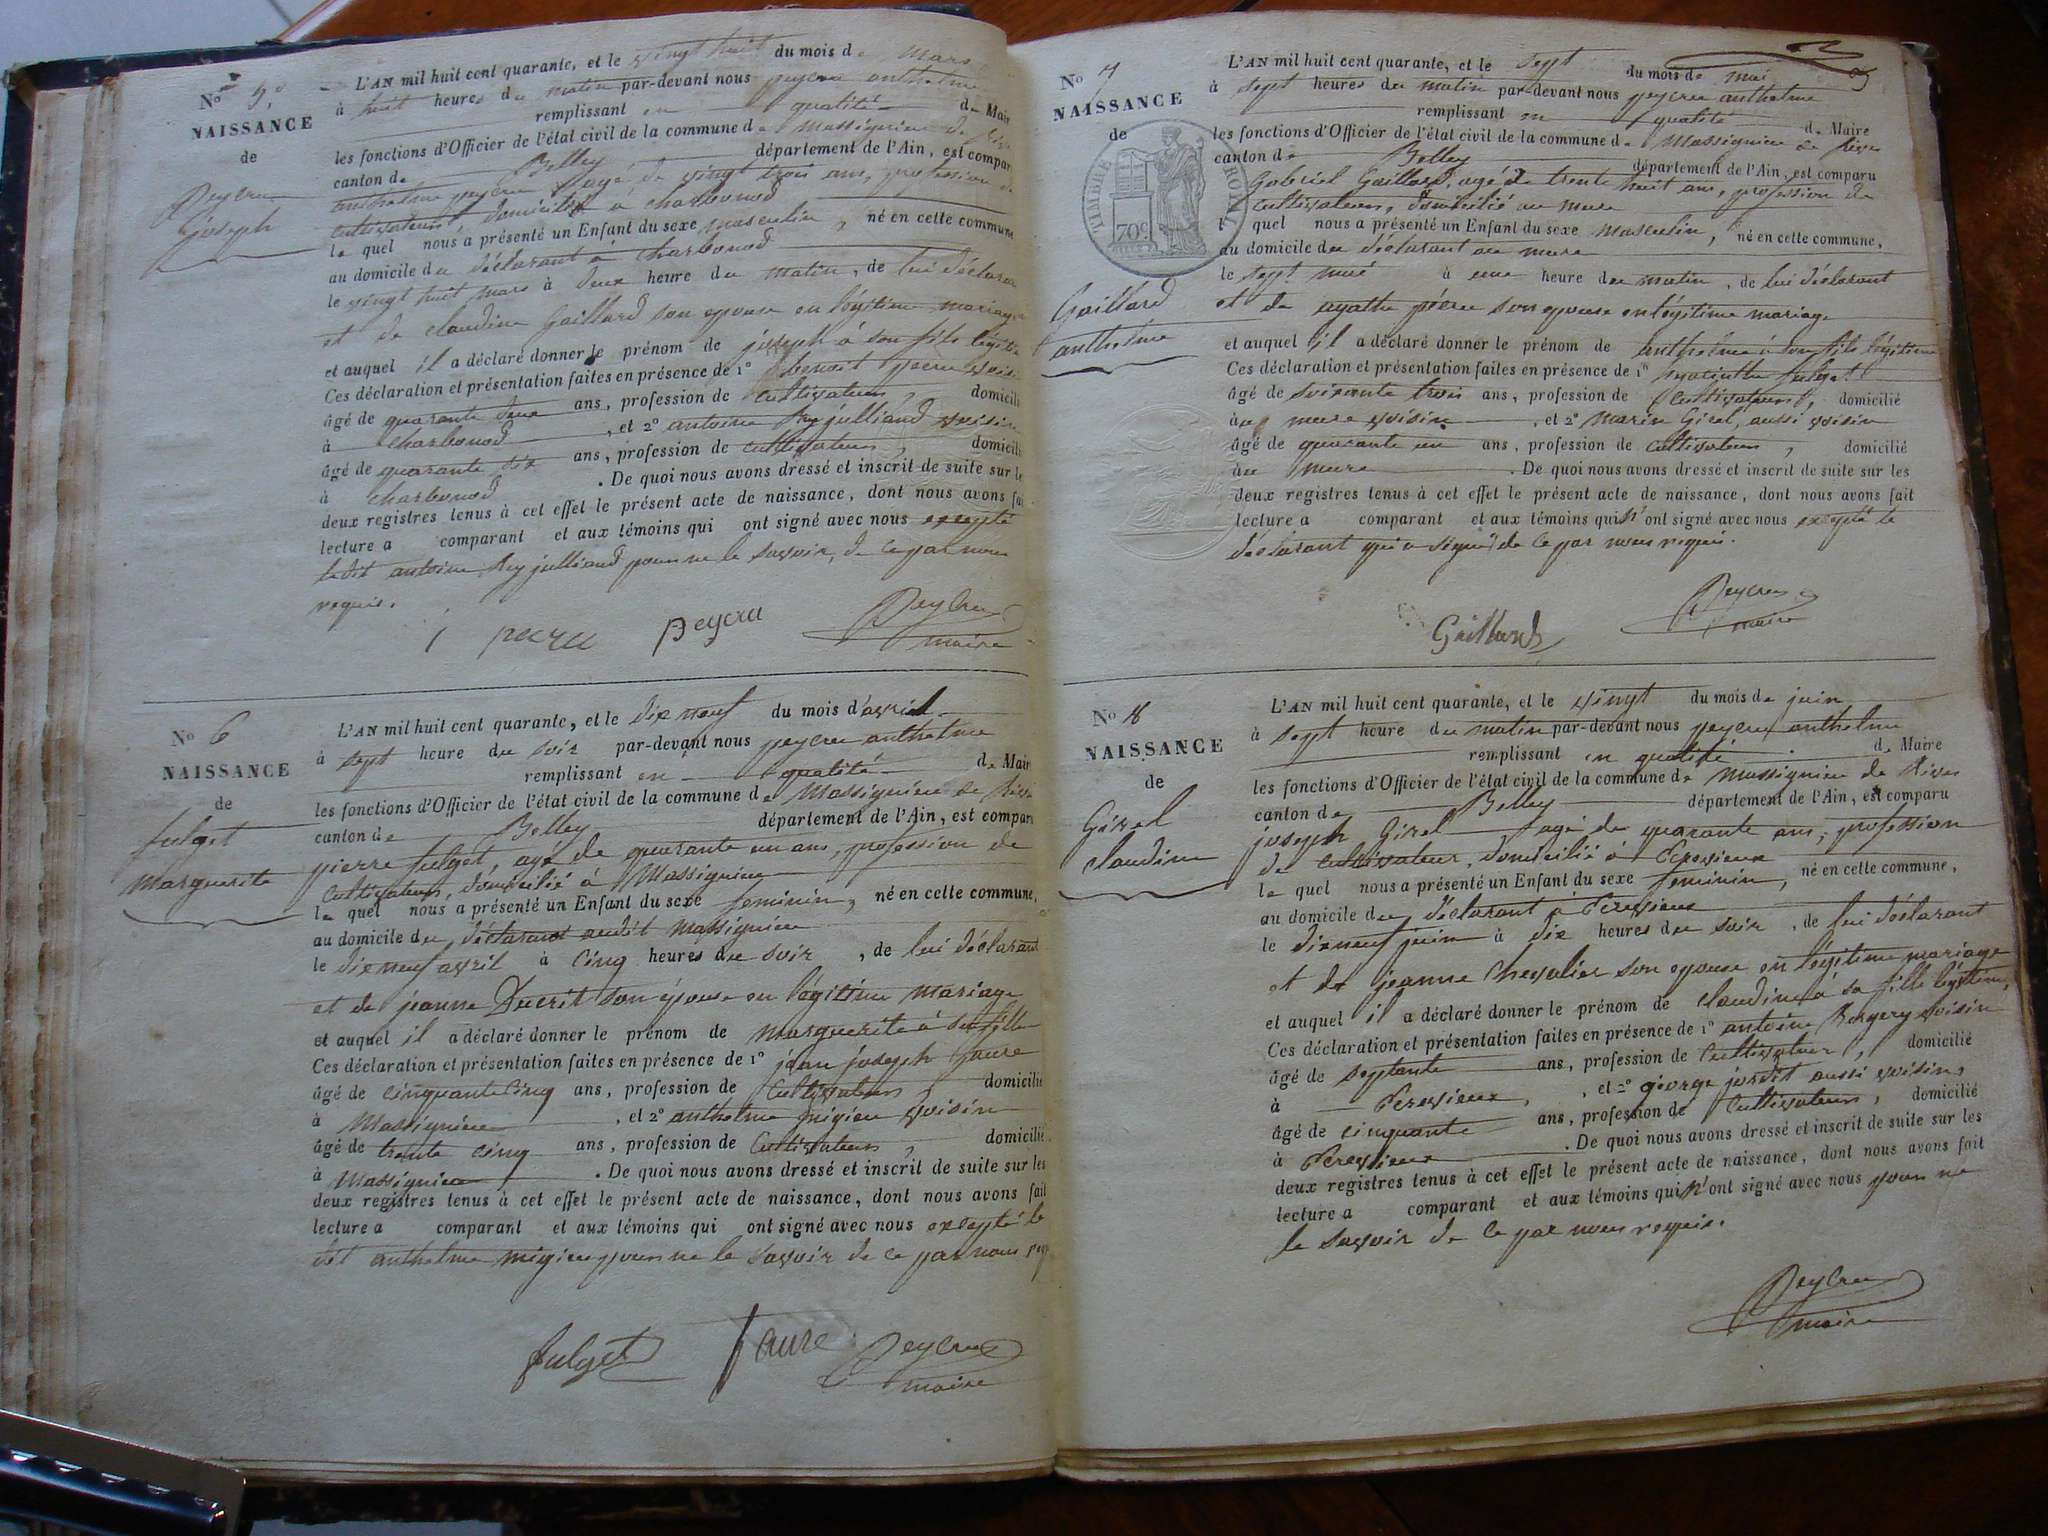 No 5.
NAISSANCE
de
Peycru
joseph
L'AN mil huit cent quarante, et le vingt huit du mois de Mars
à huit heures du matin par-devant nous peycru anthelme
remplissant en qualité de Maire
les fonctions d'Officier de l'état civil de la commune de Massignieu de Rives
canton de Belley département de l'Ain, est comparu
anthelme peycru agé de vingt trois ans, profession de
cultivateur, domicilié à charbonod
le quel nous a présenté un Enfant du sexe masculin, né en cette commune
au domicile du déclarant à charbonod
le vingt huit mars à deux heure du matin, de lui déclarant
et de claudine Gaillard son epouse en légitime mariage
et auquel il a déclaré donner le prénom de joseph à son fils légitime
Ces déclaration et présentation faites en présence de 1º benoit pecru voisin
âgé de quarante deux ans, profession de cultivateur, domicilié
à charbonod, et 2º antoine Rey julliand voisin
âgé de quarante six ans, profession de cultivateur, domicilié
à charbonod. De quoi nous avons dressé et inscrit de suite sur les
deux registres tenus à cet effet le présent acte de naissance, dont nous avons fait
lecture a comparant et aux témoins qui ont signé avec nous excepté
ledit antoine Rey julliand pour ne le savoir, de ce par nous
requis.
pecru peycru Peycru
maire
No 6
NAISSANCE
de
fulget
marguerite
L'AN mil huit cent quarante, et le dix neuf du mois d'avril
à sept heure du soir par-devant nous peycru anthelme
remplissant en qualité de Maire
les fonctions d'Officier de l'état civil de la commune de Massignieu de Rives
canton de Belley département de l'Ain, est comparu
pierre fulget, agé de quarante un ans, profession de
cultivateur, domicilié à Massignieu
le quel nous a présenté un Enfant du sexe feminin, né en cette commune,
au domicile du déclarant audit Massignieu
le dix neuf avril à cinq heures du soir, de lui déclarant
et de jeanne Ducrit son épouse en légitime mariage
et auquel il a déclaré donner le prénom de marguerite à sa fille
Ces déclaration et présentation faites en présence de 1º jean joseph faure
âgé de cinquante cinq ans, profession de cultivateur, domicilié
à Massignieu, et 2º anthelme migieu voisin
âgé de trente cinq ans, profession de cultivateur, domicilié
à Massignieu. De quoi nous avons dressé et inscrit de suite sur les
deux registres tenus à cet effet le présent acte de naissance, dont nous avons fait
lecture a comparant et aux témoins qui ont signé avec nous excepté le
dit anthelme migieu pour ne le savoir de ce par nous requis
fulget faure Peycru
maire
No 7
NAISSANCE
de
TIMBRE ROYAL
70c
Gaillard
anthelme
L'AN mil huit cent quarante, et le sept du mois de mai
à sept heures du matin par-devant nous peycru anthelme
remplissant en qualité de Maire
les fonctions d'Officier de l'état civil de la commune de Massignieu de Rives
canton de Belley département de l'Ain, est comparu
Gabriel Gaillard, agé de trente huit ans, profession de
cultivateur, domicilié au mure
le quel nous a présenté un Enfant du sexe masculin, né en cette commune,
au domicile du déclarant au mure
le sept mai à une heure du matin, de lui déclarant
et de agathe pécru son epouse en légitime mariage
et auquel il a déclaré donner le prénom de anthelme à son fils légitime
Ces déclaration et présentation faites en présence de 1º hyacinthe fulget
âgé de soixante trois ans, profession de cultivateur, domicilié
au mure voisin, et 2º marin Girel, aussi voisin
âgé de quarante un ans, profession de cultivateur, domicilié
au mure. De quoi nous avons dressé et inscrit de suite sur les
deux registres tenus à cet effet le présent acte de naissance, dont nous avons fait
lecture a comparant et aux témoins qui n'ont signé avec nous excepté le
déclarant qui a signé de ce par nous requis.
Gaillard Peycru
maire
No 8
NAISSANCE
de
Girel
claudine
L'AN mil huit cent quarante, et le vingt du mois de juin
à sept heure du matin par-devant nous peycru anthelme
remplissant en qualité de Maire
les fonctions d'Officier de l'état civil de la commune de Massignieu de Rives
canton de Belley département de l'Ain, est comparu
joseph Girel agé de quarante ans, profession
de cultivateur, domicilié à
le quel nous a présenté un Enfant du sexe feminin, né en cette commune,
au domicile du déclarant à
le dix neuf juin à dix heures du soir, de lui déclarant
et de jeanne Chevalier son epouse en légitime mariage
et auquel il a déclaré donner le prénom de claudine à sa fille légitime,
Ces déclaration et présentation faites en présence de 1º antoine voisin
âgé de septante ans, profession de cultivateur, domicilié
à , et 2º george jordit aussi voisin,
âgé de cinquante ans, profession de cultivateur, domicilié
à . De quoi nous avons dressé et inscrit de suite sur les
deux registres tenus à cet effet le présent acte de naissance, dont nous avons fait
lecture a comparant et aux témoins qui n'ont signé avec nous pour ne
le savoir de ce par nous requis.
Peycru
maire